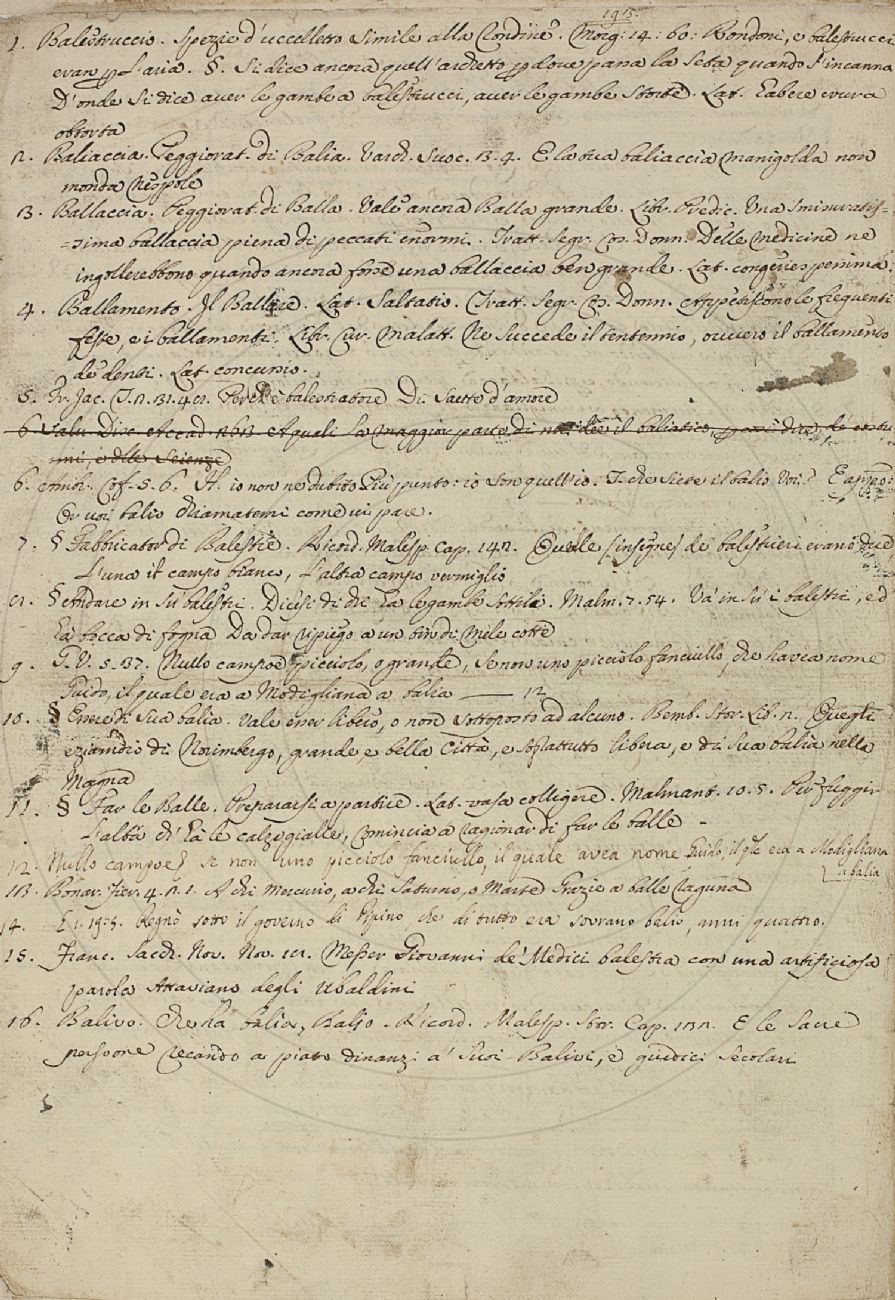 1915.
1. Balestruccio. Spezie d'uccelletto simile alla Rondine. Morg: 14: 60: Rondoni, e balestrucci
evan p L'aria. §. Si dice ancora quell'archetto p dove passa la seta quando s'incanna
D'onde si dice aver le gambe a balestrucci, aver le gambe storte. Lat. Habere crura
obtorta
2. Baliaccia. Peggiorat. di Balia. Varch. Suoc. 3. 4. E la tua baliaccia manigolda non
monda Nespole
3. Ballaccia. Peggiorat. di Balla. Vale ancora Balla grande. Libr. Predic. Una smisuratis-
=sima ballaccia piena di peccati enormi. Tratt. Segr. Cos. Donn. Delle medicine ne
ingollerebbono quando ancora fosse una ballaccia ben grande. Lat. congeries pessima.
4. Ballamento. Il Ballare. Lat. Saltatio. Tratt. Segr. Cos. Donn. Appetiscono le frequenti
feste, e i ballamenti. Libr. Cur. Malatt. Ne succede il tentennio, ovvero il ballamento
de' denti. Lat. concussio.
5. Fr. Jac. T. 2. 31. 48. Perch' è balestratore Di Saette d'amore
6 Salv. Disc. Accad. 263 A quali la maggior parte di noi dee il baliatico, p così dire, de' costu
mi, e delle Scienze
6. Ambr. Cof. 5. 6. H. io non ne dubito Più punto: io son quell'io. I. che siete il balio Voi? E appo:
Or voi balio chiamatemi come vi pare.
7. § Fabbricator di Balestre. Ricord. Malesp. Cap. 142. Quelle (insegne) de' balestrieri erano due
L'una il campo bianco, l'altra campo vermiglio
8. § Andare in su' balestri. Dicesi di chi ha le gambe sottili. Malm. 7. 54. Va' in su' i balestri, ed
ha bocca di fogna Da dar ripiego a un tin di mele cotte
9. G. V. 5. 37. Nullo campoe picciolo, o grande, se non uno picciolo fanciullo, che havea nome
Guido, il quale era a Modigliana a balia —— 12
10. § Essere di sua balia. Vale esser libero, o non sottoposto ad alcuno. Bemb. Stor. Lib. 2. Quegli
eziandio di Norimbergo, grande, e bella Città, e soprattutto libera, e di sua balia nella
Magna
11. § Far le Balle. Prepararsi a partire. Lat. vasa colligere. Malmant. 10. 5. Per fuggir
L'alba ch' ha le calze gialle, comincia a ragionar di far le balle -
12. Nullo campoe se non uno picciolo fanciullo, il quale avea nome Guido, il qle era a Modigliana
a balia
13. Bonar. Fier. 4. 2. 1. A chi Mercurio, a chi Saturno, o Marte Grazie a balle raguna
14. E 1. 19: 5. Regnò sotto il governo di Pipino che di tutto era sovrano balio, anni quattro.
15. Franc. Sacch. Nov. Nov. 18. Messer Giovanni de' Medici balestra con una artificiosa
parola Attaviano degli Ubaldini
16. Balivo. che ha balia, Balio. Ricord. Malesp. Stor. Cap. 132. E le sacre
persone recando a piato dinanzi a' suoi Balivi, e giudici secolari